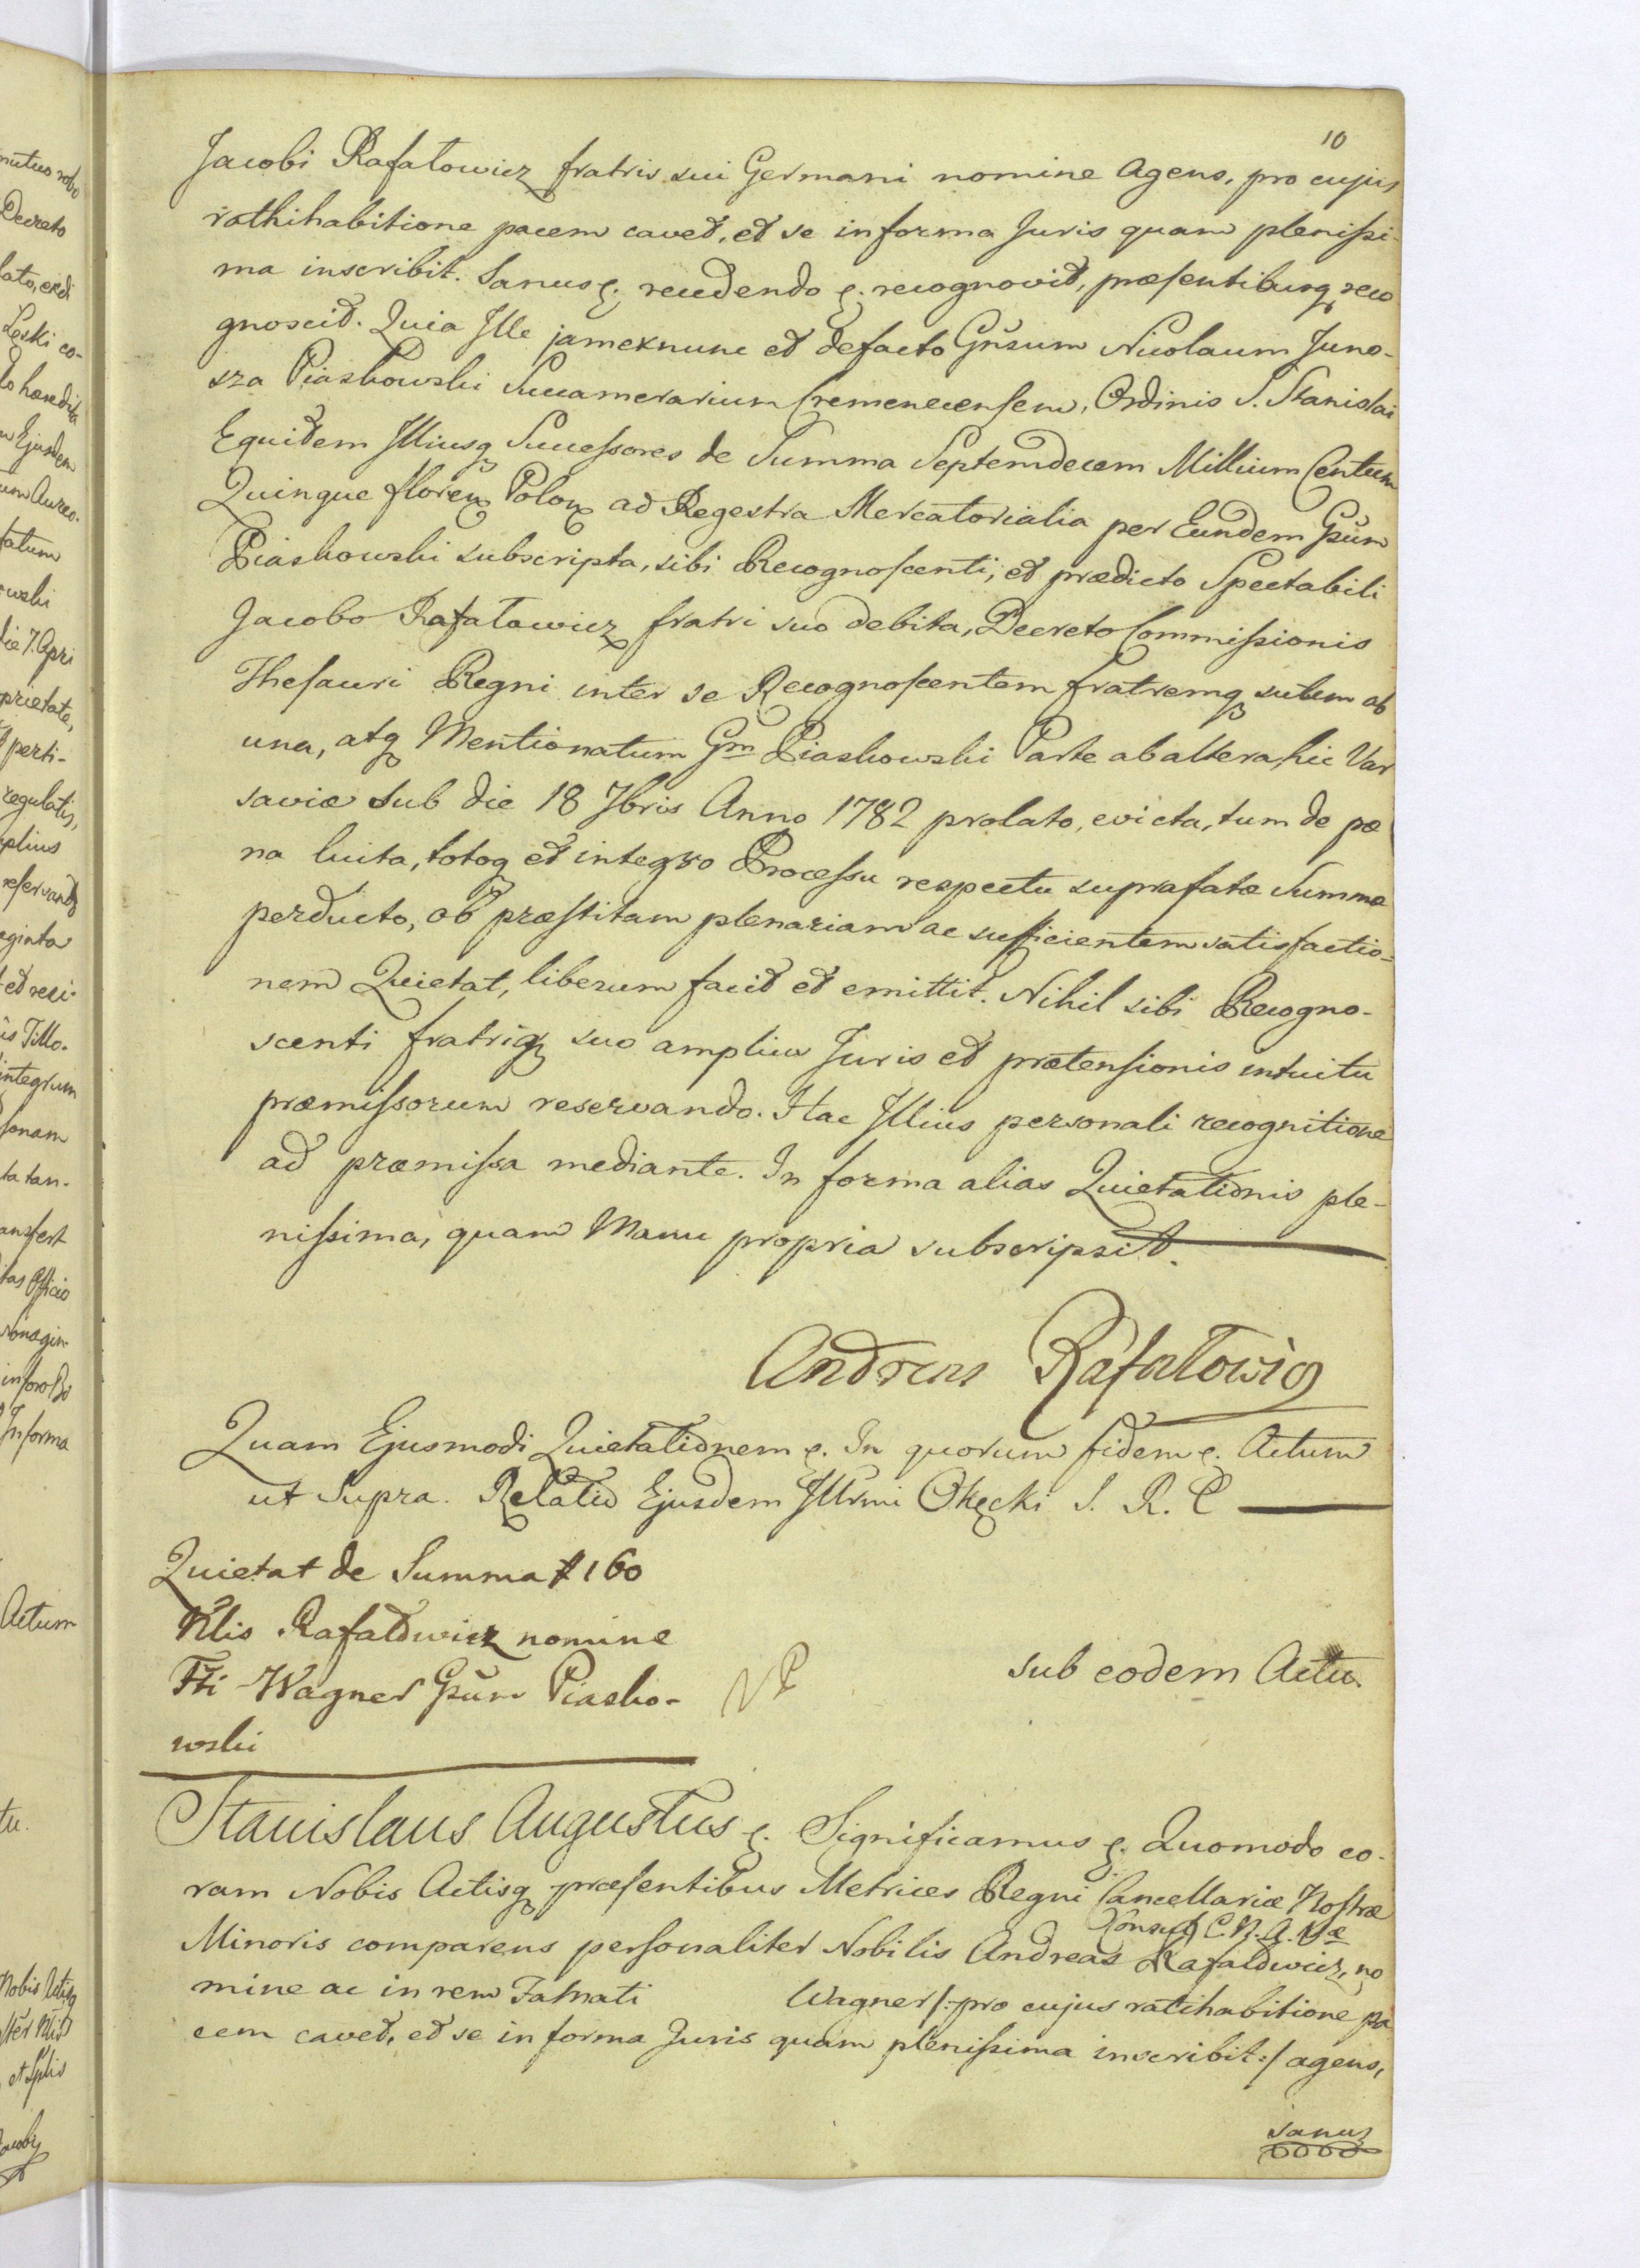 10
Jacobi Rafałowicz fratris sui Germani nomine agens, pro cujus
rathihabitione pacem cavet, et se in forma Juris quam plenissi-
ma inscribit. Sanus e. recedendo e. recognovit, præsentibusq reco
gnoscit. Quia Ille jam ex nunc et de facto Gnsum Nicolaum Juno-
sza Piaskowski Succamerarium Cremenecensem, Ordinis S. Stanislai
Equitem Illiusq Successores de Summa Septemdecem Millium Centum
Quinque floren Polon ad Regestra Mercatorialia per Eundem Gsum
Piaskowski subscripta, sibi Recognoscenti, et prædicto Spectabili
Jacobo Rafałowicz fratri suo debita, Decreto Commissionis
Thesauri Regni inter se Recognoscentem fratremq suum ab
una, atq Mentionatum Gm Piaskowski Parte ab altera, hic Var
saviæ sub die 18 7bris Anno 1782 prolato, evicta, tum de pœ
na luita, totoq et integro Processu respectu suprafatæ Summæ
perducto, ob præstitam plenariam ac sufficientem satisfactio-
nem Quietat, liberum facit et emittit. Nihil sibi Recogno-
scenti fratriq suo amplius Juris et prætensionis intuitu
præmissorum reservando. Hac Illius personali recognitione
ad præmissa mediante. In forma alias Quietationis ple-
nissima, quam Manu propria subscripsit.
Andreas Rafałowicz
Quam Ejusmodi Quietationem e. In quorum fidem e. Actum
ut Supra. Relatio Ejusdem Illrmi Okęcki S. R. C
Quietat de Summa # 160
Nlis Rafałowicz nomine
Fti Wagner Gsum Piasko-
wski
sub eodem Actu
Stanislaus Augustus e. Significamus e. Quomodo co-
ram Nobis Actisq præsentibus Metrices Regni Cancellariæ Nostræ
Minoris comparens personaliter Nobilis Andreas Rafałowicz, no
mine ac in rem Famati Wagner /: pro cujus ratihabitione pa
cem cavet, et se in forma Juris quam plenissima inscribit :/ agens,
sanus